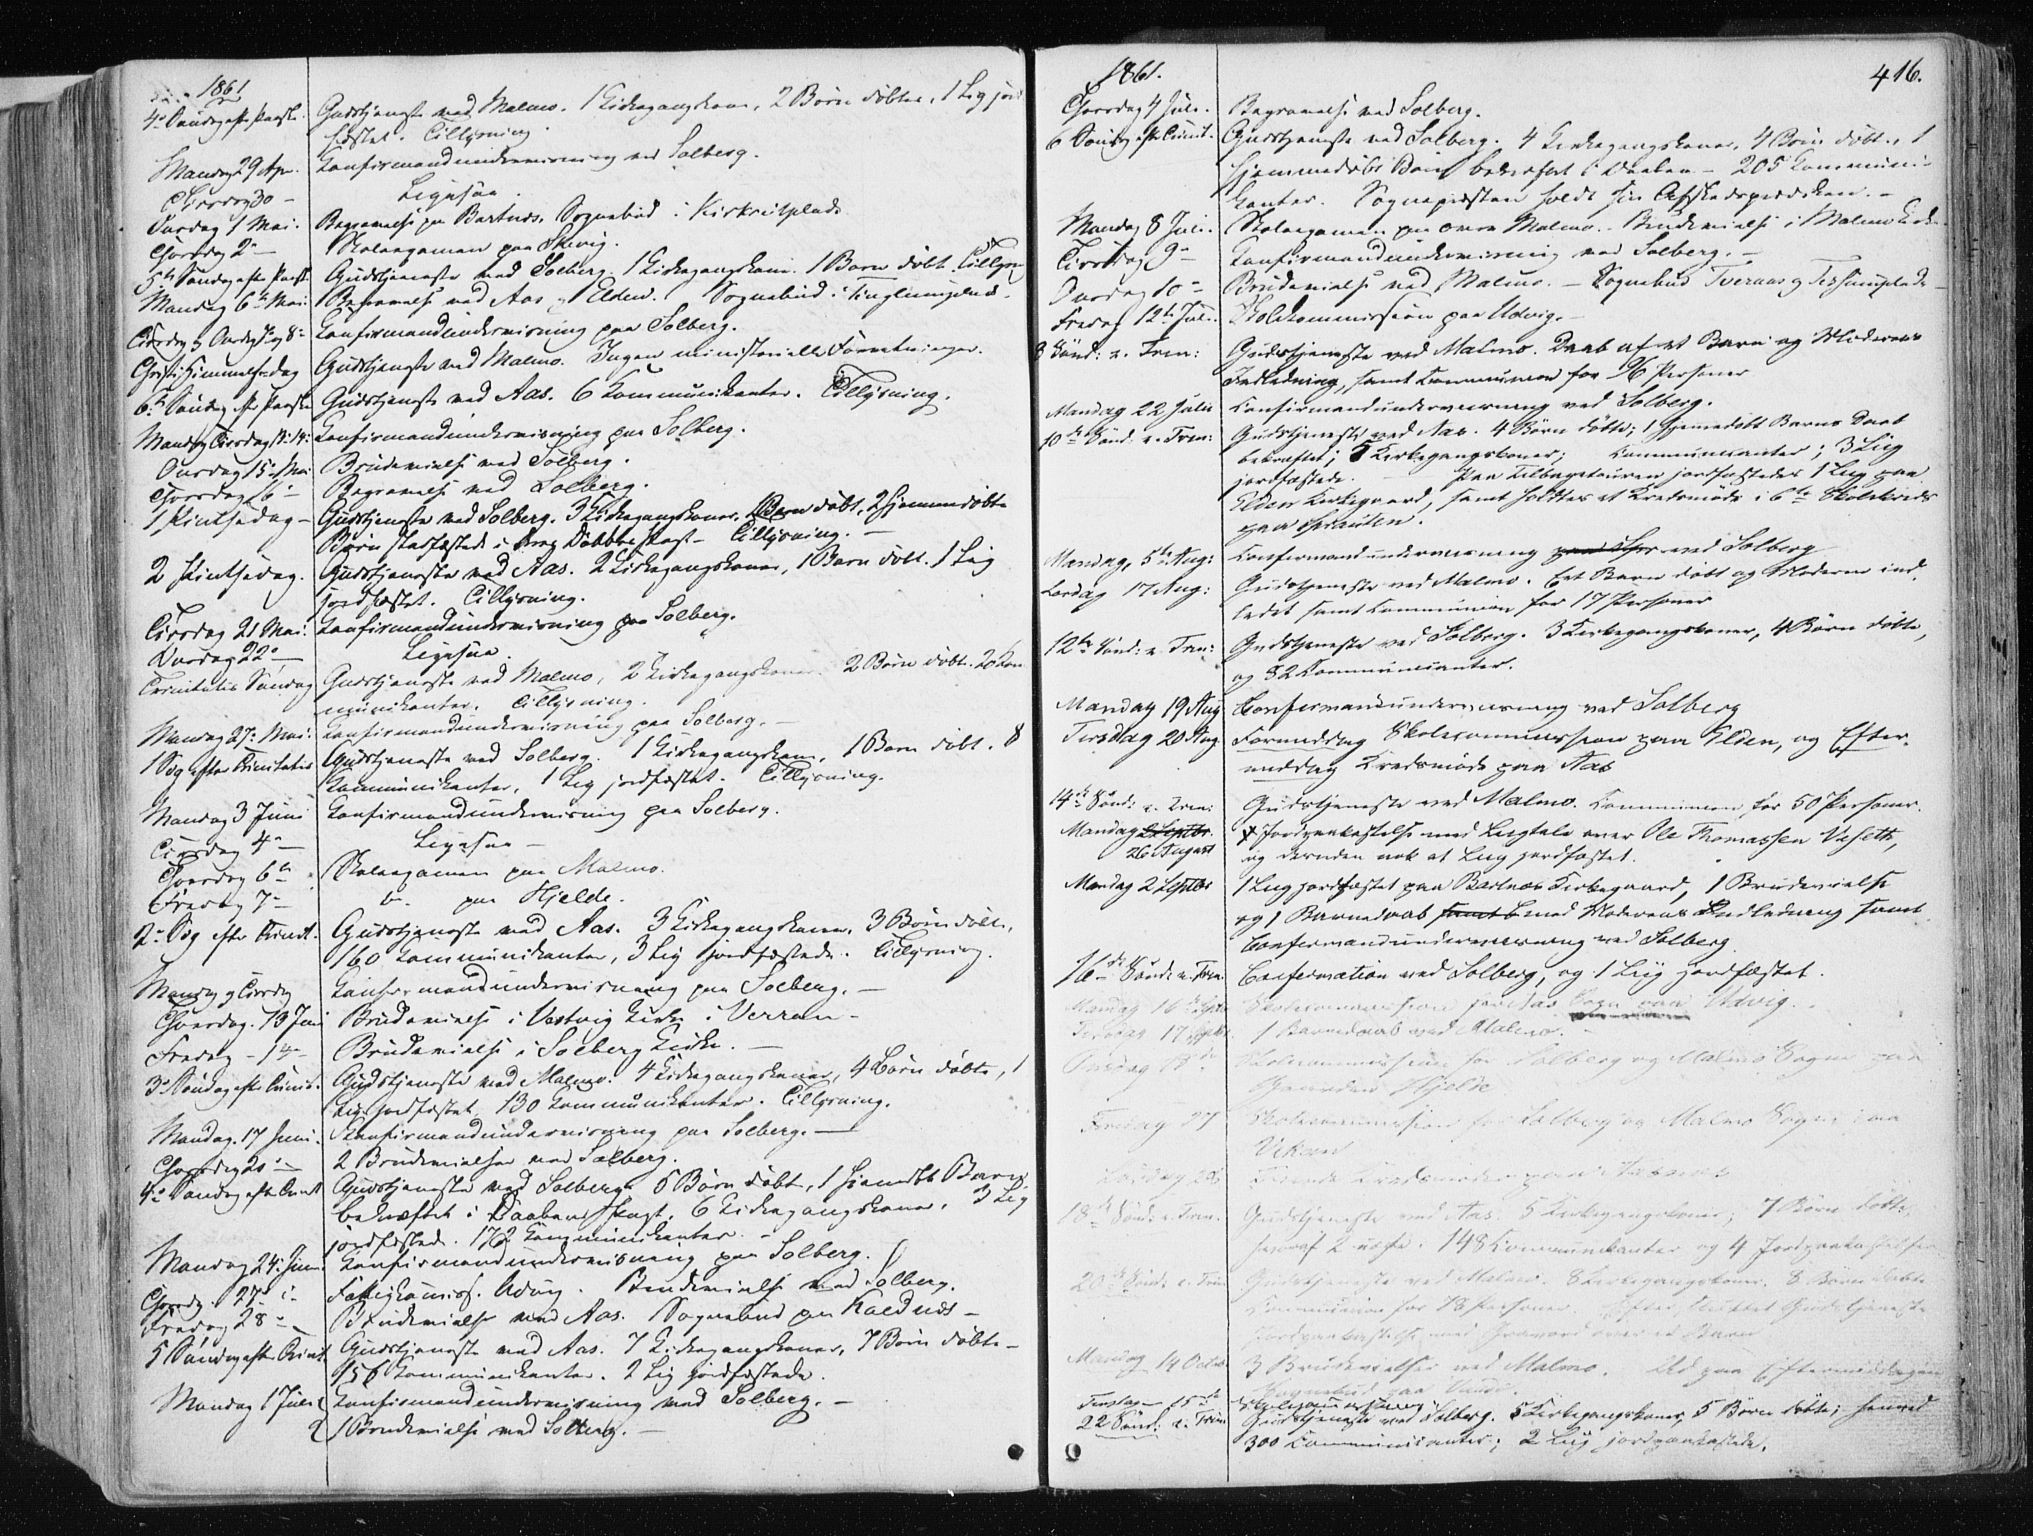 1861
4de Søndag eft. Paaske. Gudstjeneste ved Malmo. 1 Kirkegangskone, 2 Børn døbte, 1 Lig jord
fæstet. Tillysning.
Mandag 29 Apr. Konfirmandundervisning ved Solberg.
Tirsdag 30 - Ligesaa.
Onsdag 1 Mai. Begravelse paa Bartnes. Sognebud i
Thorsdag 2 - Skoleexamen paa Utvig.
5te Søndag efter Paaske Gudstjeneste ved Solberg. 1 Kirkegangskone. 1 Barn døbt. Tillysn
Mandag 6te Mai. Begravelse ved Aas og Elden. Sognebud i
Tirsdag 7 og Onsdag 8 - Konfirmandundervisning paa Solberg.
Christi Himmelfartsdag Gudstjeneste ved Malmo. Ingen ministerielle Forretninger.
6te Søndag efter Paaske Gudstjeneste ved Aas. 6 Kommunikanter. Tillysning.
Mandag Tirsdag 13. 14. Konfirmandundervisning paa Solberg.
Onsdag 15 Mai Brudevielse ved Solberg.
Thorsdag 16 - Begravelse ved Solberg.
1 Pintsedag - Gudstjeneste ved Solberg. 3 Kirkegangskoner. 1 Barn døbt, 2 hjemmedøbte
Børn stadfæstede i Tillysning. -
2 Pintsedag. Gudstjeneste ved Aas. 2 Kirkegangskoner, 1 Barn døbt. 1 Lig
jordfæstet. Tillysning.
Tirsdag 21 Mai. Konfirmandundervisning paa Solberg.
Onsdag 22 - Ligesaa.
Trinitatis Søndag Gudstjeneste ved Malmo, 2 Kirkegangskoner. 2 Børn døbt. 20 Kom
munikanter. Tillysning.
Mandag 27 Mai. Konfirmandundervisning paa Solberg. -
1 Sdg efter Trinitatis Gudstjeneste ved Solberg. 1 Kirkegangskone, 1 Barn døbt. 8
Kommunikanter, 1 Lig jordfæstet. Tillysning.
Mandag 3 Juni Konfirmandundervisning paa Solberg.
Tirsdag 4 - Ligesaa -
Thorsdag 6te Skoleexamen paa Malmo.
Fredag 7 - paa Hjelde.
2 Sdg efter Trinit. Gudstjeneste ved Aas. 3 Kirkegangskoner. 3 Børn døbte,
160 Kommunikanter, 3 Lig jordfæstede. Tillysning.
Mandag og Tirsdag Konfirmandundervisning paa Solberg. -
Thorsdag. 13 Juni Brudevielse i Vestvig Kirke i Verran -
Fredag - 14 - Brudevielse i Solberg Kirke. -
3 Søndag efter Trinit. Gudstjeneste ved Malmo. 4 Kirkegangskoner, 4 Børn døbte, 1
Lig jordfæstet. 130 Kommunikanter. Tillysning.
Mandag. 17 Juni. Konfirmandundervisning paa Solberg. -
Thorsdag 20 - 2 Brudevielser ved Solberg.
4 Søndag efter Trinit Gudstjeneste ved Solberg. 6 Børn døbte, 1 hjemdbt Barn
bekræftet i Daabens Pagt, 6 Kirkegangskoner. 3 Lig
jordfæstede. 172 Kommunikanter. -
Mandag 24. Juni Konfirmandundervisning paa Solberg.
Thorsdg. 27 - Fattigkomiss. Utvig. Brudevielse ved Solberg.
Fredag 28 - Brudevielse ved Aas. Sognebud paa
5 Søndag efter Trinit Gudstjeneste ved Aas. 7 Kirkegangskoner, 7 Børn døbte -
156 Kommunikanter. 2 Lig jordfæstede.
Mandag 1 Juli Konfirmandundervisning ved Solberg. -
2 1 Brudevielse ved Solberg. -
1861. 416.
Thorsdag 4 Juli. Begravelse ved Solberg.
6 Søndag efter Trinit. Gudstjeneste ved Solberg. 4 Kirkegangskoner, 4 Børn døbt., 1
hjemmedøbt Barn bekræftet i Daaben - 205 Kommuni-
kanter. Sognepræsten holdt sin Afskedsprædiken. -
Mandag 8 Juli. Skoleexamen paa øvre Malmo. - Brudevielse i Malmo Kirke
Tirsdag 9 - Konfirmandundervisning ved Solberg. -
Onsdag 10 - Brudevielse ved Malmo. - Sognebud Tveraas og
Fredag 12te Juli. Skolekommission paa Utvig. -
8 Sønd: e. Trin: Gudstjeneste ved Malmo. Daab af et Barn og Moderens
Indledning, samt Communion for 16 Personer
Mandag 22 Julii Confirmandunderviisning ved Solberg.
10de Sønd. e. Trin: Gudstjeneste ved Aas. 4 Børn døbte; 1 hjemmedøbt Barns Daab
bekræftet; 5 Kirkegangskoner; Communicanter; 3 Liig
jordfæstede. - Paa Tilbagetouren jordfæstedes 1 Liig paa
Elden Kirkegaard, samt holdtes et Kredsmøde i 6te Skolekreds
paa
Mandag, 5te Aug: Confirmandunderviisning ved Solberg
Lørdag 17 Aug: Gudstjeneste ved Malmo. Eet Barn døbt og Moderen ind-
ledet samt Communion for 17 Personer
12te Sønd: e. Trin: Gudstjeneste ved Solberg. 3 Kirkegangskoner, 4 Børn døbte,
og 82 Communicanter.
Mandag 19 Aug Confirmandunderviisning ved Solberg
Tirsdag 20 Aug. Formiddag Skolecommission paa Elden, og Efter-
middag Kredsmøde paa Aas
14de Sønd: e. Trin: Gudstjeneste ved Malmo. Communion for 50 Personer.
Mandag 2 Septbr. 26 August Jordpaakastelse med Liigtale over Ole Thomassen Vaseth,
og desuden nok et Liig jordfæstet.
Mandag 2 Septbr 1 Liig jordfæstet paa Bartnes Kirkegaard, 1 Brudevielse
og 1 Barnedaab samt med Moderens Indledning samt
Confirmandunderviisning ved Solberg.
16de Sønd: e. Trin. Confirmation ved Solberg, og 1 Liig jordfæstet.
Mandag 16de Septbr Skolecommission for Aas Sogn paa Utvig.
Tirsdag 17 Septbr. 1 Barnedaab ved Malmo. -
Onsdag 18de Skolecommission for Solberg og Malmo Sogne paa
Gaarden Hjelde
Fredag 27 Skolecommission for Solberg og Malmo Sogne paa
Vikan
Lørdag 28
18de Sønd: e. Trin. Gudstjeneste ved Aas. 5 Kirkegangskoner; 7 Børn døbte,
hvoraf 2 uægte. 148 Communicanter og 4 Jordpaakastelser
20de Sønd: e. Trin Gudstjeneste ved Malmo. 8 Kirkegangskoner. 8 Børn døbte
Communion for 78 Personer. Efter endt Gudstjeneste
Jordpaakastelse med Gravord over et Barn
Mandag 14 Octob 3 Brudevielser ved Malmo. Ud paa Eftermiddagen
Sognebud paa
Tirsdag 15de
22 Sønd: e. Trin: Gudstjeneste ved Solberg. 5 Kirkegangskoner, 5 Børn døbte; henved
300 Communicanter; 2 Liig jordpaakastede.